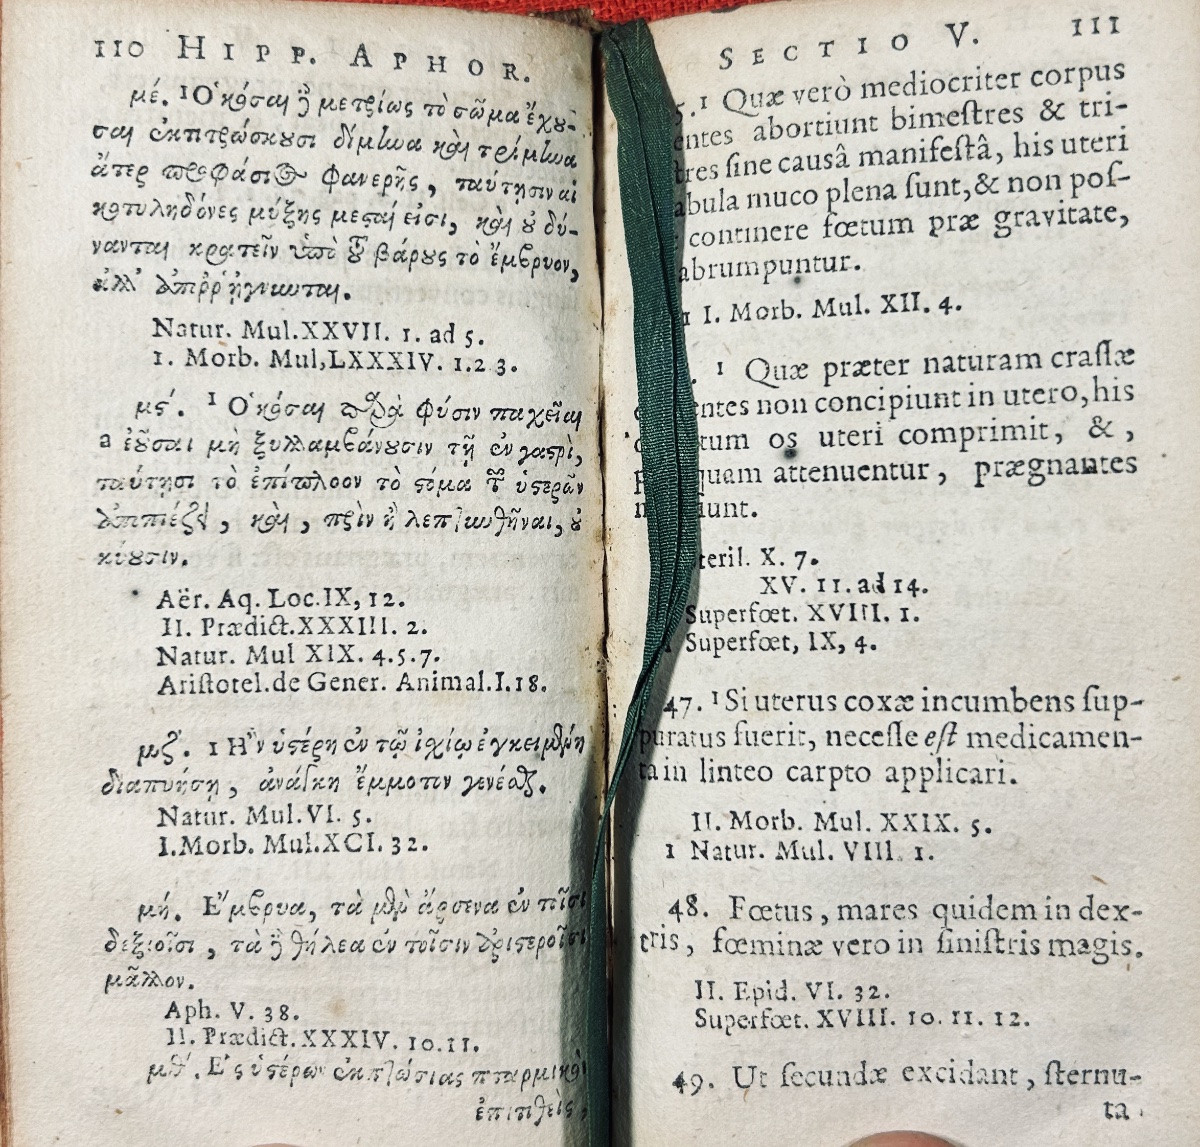 110 HIPP. APHOR.
μέ. 1 Ὁκόσαι ἢ μετρίως τὸ σῶμα ἔχου-
σαι ἐκπιτρώσκουσι δίμηνα καὶ τρίμηνα
ἄτερ προφάσιος φανερῆς, ταύτησιν αἱ
κοτυληδόνες μύξης μεσταί εἰσι, καὶ οὐ δύ-
νανται κρατεῖν ὑπὸ τοῦ βάρους τὸ ἔμβρυον,
ἀλλ' ἀποῤῥήγνυνται.
Natur. Mul.XXVII. 1. ad 5.
1. Morb. Mul,LXXXIV. 1.2 3.
μϛ΄. 1 Ὁκόσαι παρὰ φύσιν παχεῖαι
a ἐοῦσαι μὴ ξυλλαμβάνουσιν τῇ ἐν γαστρὶ,
ταύτησι τὸ ἐπίπλοον τὸ στόμα τῶν ὑστερῶν
ἀποπιέζει, καὶ, πρὶν ἢ λεπτυνθῆναι, οὐ
κύουσιν.
Aër. Aq. Loc.IX, 12.
II. Prædict.XXXIII. 2.
Natur. Mul XIX. 4.5.7.
Aristotel.de Gener. Animal.I.18.
μζ΄. 1 Ἢν ὑστέρη ἐν τῷ ἰσχίῳ ἐγκειμένη
διαπυήση, ἀνάγκη ἔμμοτον γενέσθαι.
Natur. Mul.VI. 5.
I.Morb. Mul.XCI. 32.
μή. Ἔμβρυα, τὰ μὲν ἄρσενα ἐν τοῖσι
δεξιοῖσι, τὰ δὲ θήλεα ἐν τοῖσιν ἀριστεροῖσι
μᾶλλον.
Aph. V. 38.
II. Prædict.XXXIV. 10.11.
μθ΄. Ἐς ὑστέρων ἐκπτώσιας πταρμικὸν
ἐπιτιθεὶς,
SECTIO V. 111
5. 1 Quæ verò mediocriter corpus
entes abortiunt bimestres & tri-
tres sine causâ manifestâ, his uteri
abula muco plena sunt, & non pos-
continere fœtum præ gravitate,
abrumpuntur.
1 I. Morb. Mul. XII. 4.
. 1 Quæ præter naturam crassæ
entes non concipiunt in utero, his
tum os uteri comprimit, &,
quam attenuentur, prægnantes
iunt.
teril. X. 7.
XV. 11. ad 14.
Superfœt. XVIII. 1.
1 Superfœt, IX, 4.
47. 1 Si uterus coxæ incumbens sup-
puratus fuerit, necesse est medicamen-
ta in linteo carpto applicari.
II. Morb. Mul. XXIX. 5.
1 Natur. Mul. VIII. 1.
48. Fœtus, mares quidem in dex-
tris, fœminæ vero in sinistris magis.
II. Epid. VI. 32.
Superfœt. XVIII. 10. 11. 12.
49. Ut secundæ excidant, sternu-
ta